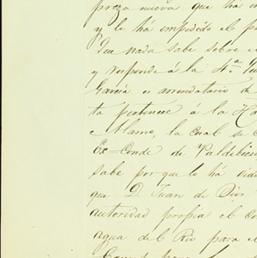 preza nueva que ha
y le ha impedido el p
Que nada sabe sobre
y responde á la 4.ª
García es arrendatario de
ta pertenece á la Ha
e Alamo, la cual se
Ex-Conde de Valdelá
sabe por que lo há
que D. Juan de Dio
autoridad propia el co
agua del Rio para e